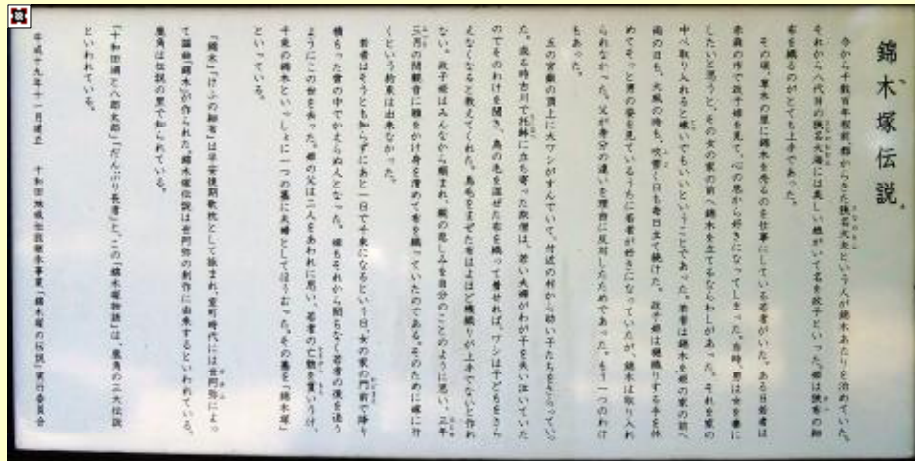 錦木塚伝説
今から千数百年程前、都からきた狭名大夫という人が錦木あたりを治めていた。
それから八代目の狭名大海には美しい娘がいて名を政子といった。姫は狭布の細
布を織るのがとても上手であった。
その頃、草木の里に錦木を売るのを仕事にしている若者がいた。ある日若者は
赤森の市で政子姫を見て、心の底から好きになってしまった。当時、男は女を妻に
したいと思うと、その女の家の前へ錦木を立てるならわしがあった。それを家の
中へ取り入れると嫁いでもいいということであった。若者は錦木を姫の家の前へ
雨の日も、大風の時も、吹雪く日も毎日立て続けた。政子姫は機織りする手を休
めてそっと男の姿を見ているうちに若者が好きになっていたが、錦木は取り入れ
られなかった。父が身分の違いを理由に反対したためであった。もう一つのわけ
もあった。
五の宮嶽の頂上に大ワシがすんでいて、付近の村から幼い子たちをさらってい
た。ある時古川で托鉢に立ち寄った旅僧は、若い夫婦がわが子を失い泣いていた
のでそのわけを聞き、鳥の毛を混ぜた布を織って着せれば、ワシは子どもをさら
えなくなると教えてくれた。鳥毛をまぜた布はよほど機織りが上手でないと作れ
ない。政子姫はみんなから頼まれ、親の悲しみを自分のことのように思い、三年
三月の間観音に願をかけ身を清めて布を織っていたのである。そのために嫁に行
くという約束は出来なかった。
若者はそうとも知らずにあと一日で千束になるという日、女の家の門前で降り
積もった雪の中でかえらぬ人となった。姫もそれから間もなく若者の後を追う
ようにこの世を去った。姫の父は二人をあわれに思い、若者の亡骸を貰いうけ、
千束の錦木といっしょに一つの墓に夫婦としてほうむった。その墓を「錦木塚」
といっている。
「錦木」「けふの細布」は平安後期歌枕として詠まれ、室町時代には世阿弥によっ
て謡曲「錦木」が作られた。錦木塚伝説は世阿弥の創作に由来するといわれている。
鹿角は伝説の里で知られている。
「十和田湖と八郎太郎」「だんぶり長者」と、この「錦木塚物語」は、鹿角の三大伝説
といわれている。
平成十九年十一月建立　十和田地域伝説継承事業「錦木塚の伝説」実行委員会